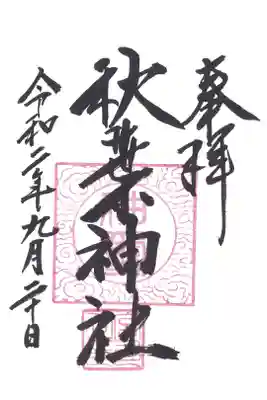 奉拝
秋葉神社
令和二年九月二十日